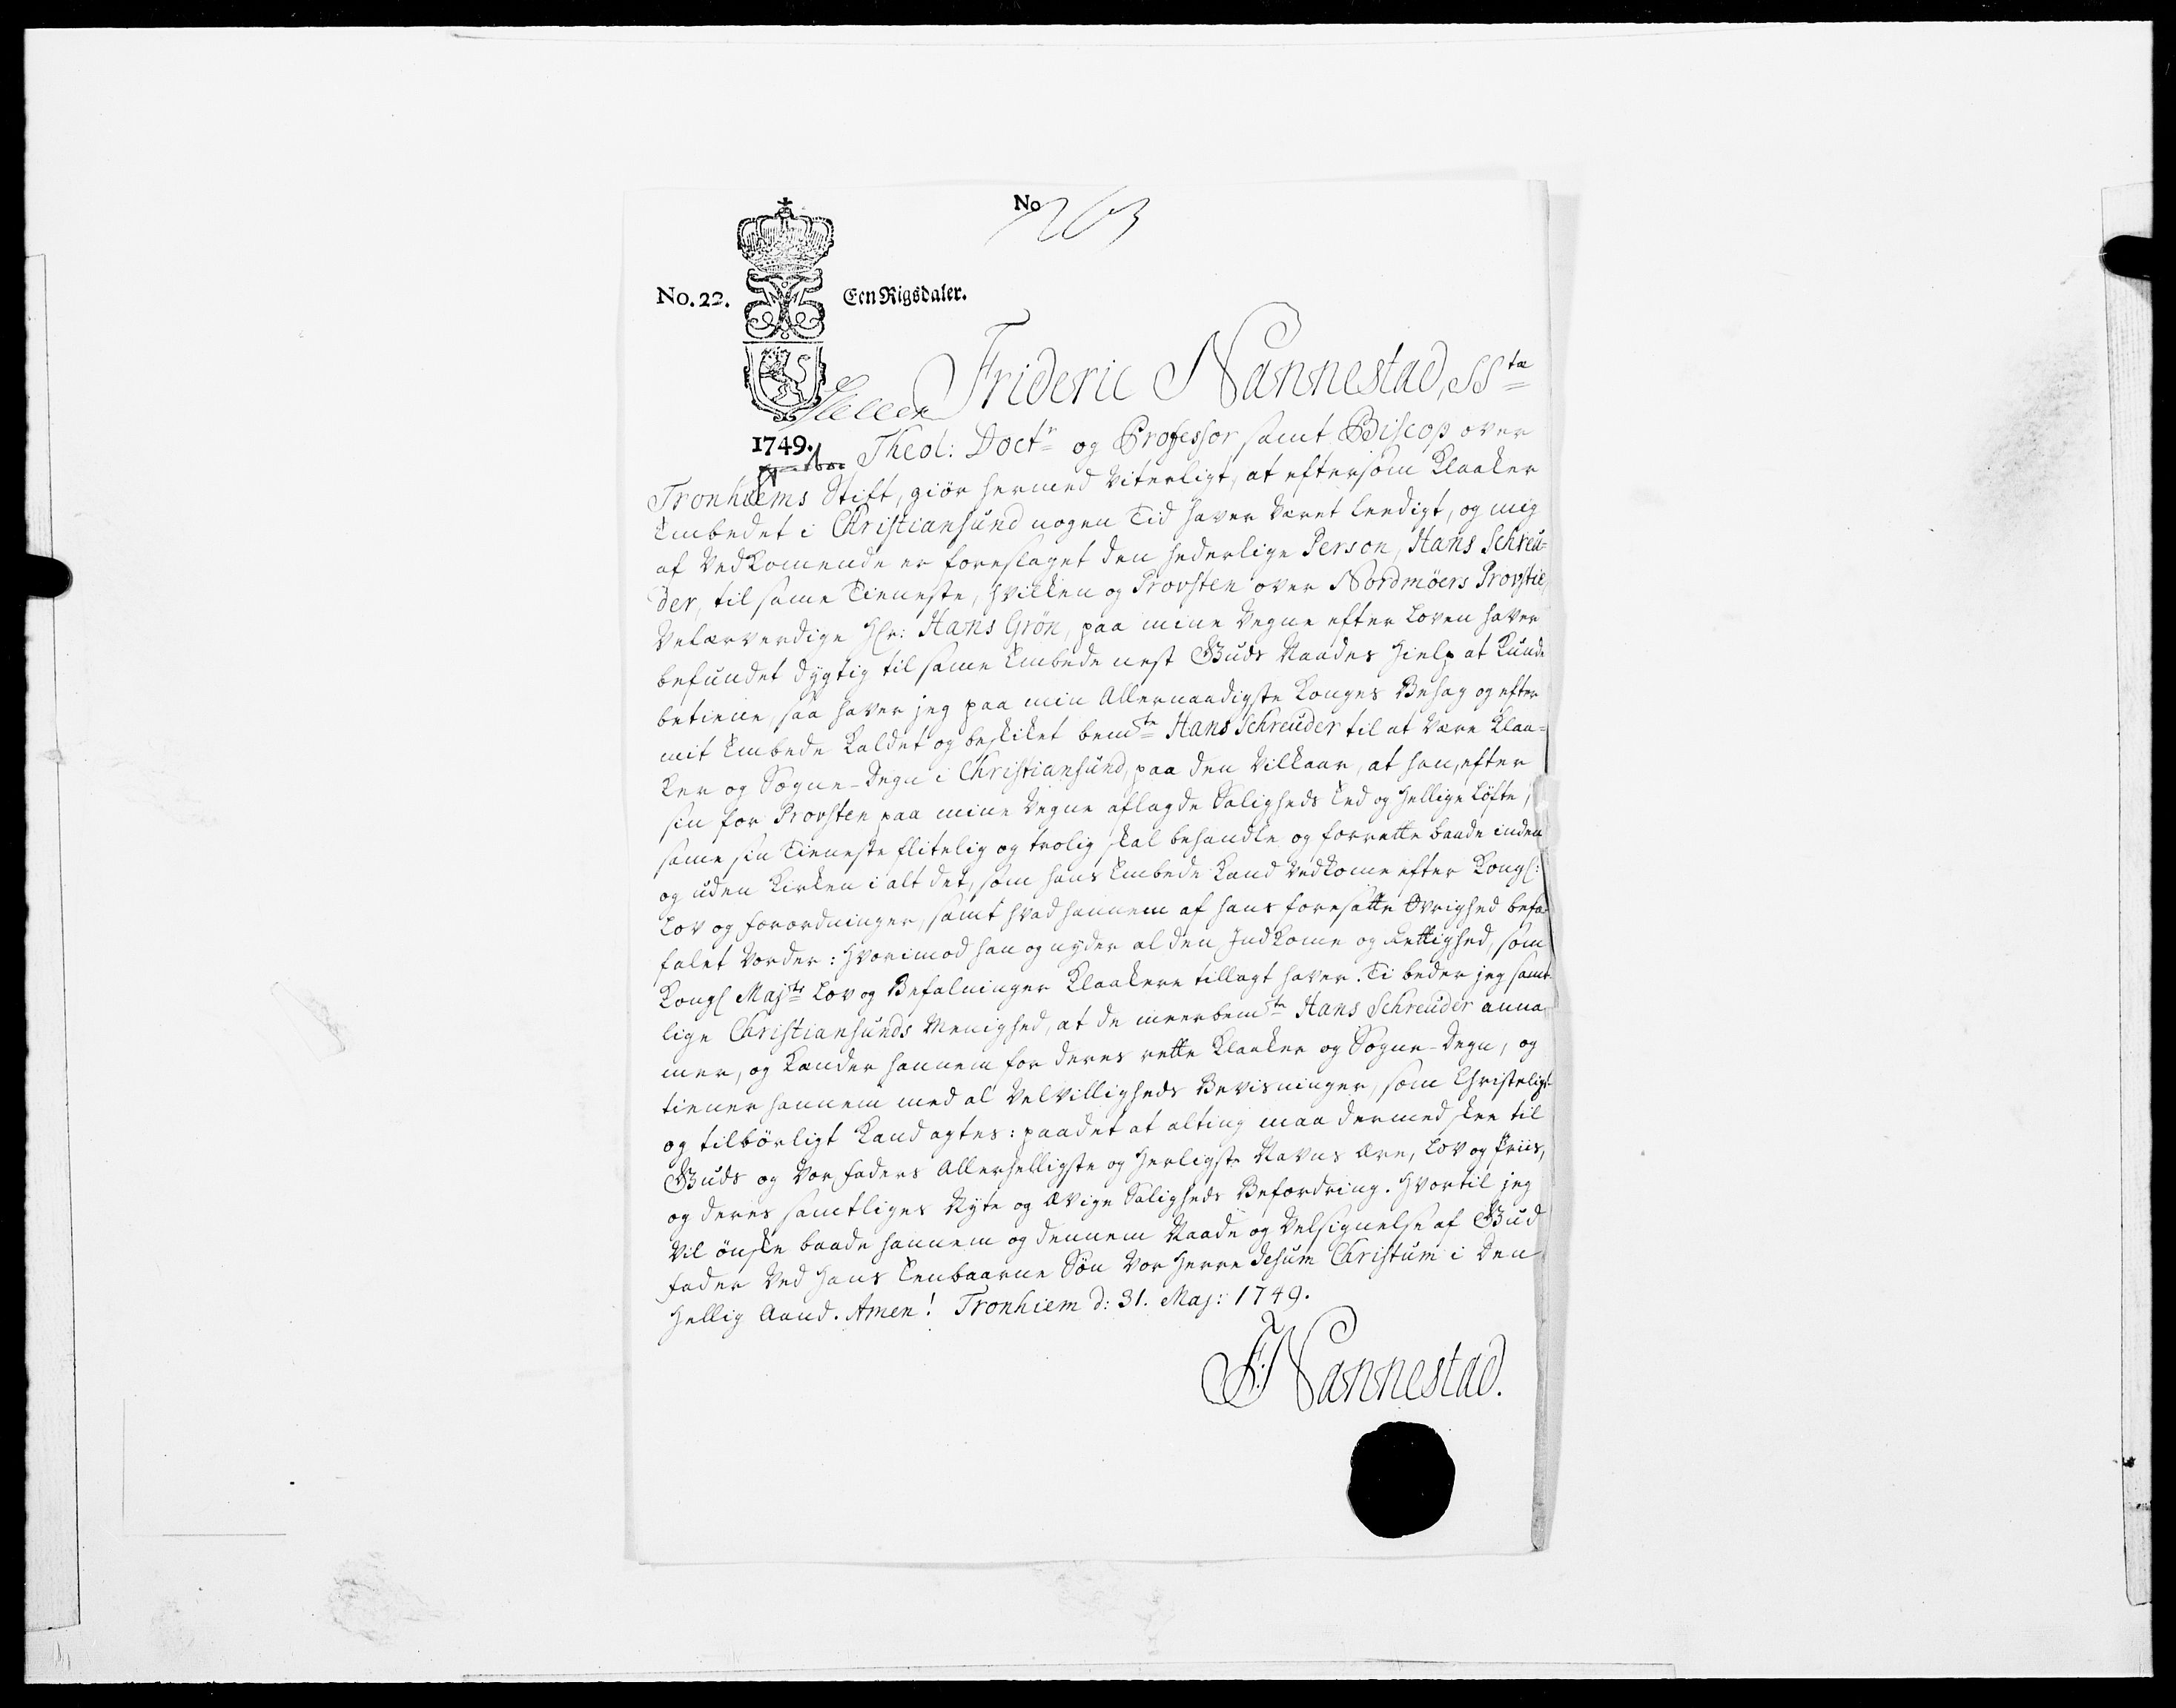 No
763
No. 22.
Een Rigsdaler.
1749.
Frideric Nannestad, SStæ
Theol: Doctr og Professor samt Biscop over
Tronhiems Stift, giör hermed Viterligt, at eftersom Klocker
Embedet i Christiansund nogen Tid haver Været leedigt, og mig
af Vedkomende er foreslaget den hederlige Person, Hans Schreu=
der, til same Tieneste, hvilken og Provsten over Nordmöers Provstie
Velærverdige Hr: Hans Grön, paa mine Vegne efter Loven haver
befundet dygtig til same Embede nest Guds Naades Hielp at kunde
betiene, saa haver jeg paa min Allernaadigste Konges Behag og efter
mit Embede Kaldet og beskiket bemte Hans Schreuder til at Være Klaa=
ker og Sogne-Degn i Christiansund, paa den Villkaar, at han, efter
sin for Provsten paa mine Vegne aflagde Saligheds Eed og Hellige Löfte,
same sin Tieneste flitelig og trolig skal behandle og forrette baade inden
og uden Kirken i alt det, som hans Embede Kand Vedkome efter Kongl:
Lov og Forordninger, samt hvad hannem af hans foresatte Övrighed befa=
falet Vorder: Hvorimod han og nyder al den Indkome og Rettighed, som
Kongl Majts Lov og Befalninger Klaakere tillagt haver. Ti beder jeg samt
lige Christiansunds Menighed, at de meerbemte Hans Schreuder anna=
mer, og Kender hannem for deres rette Klaaker og Sogne-Degn, og
tiener hannem med al Velvilligheds Bevisninger, som Christeligt
og tilbörligt Kand agtes: paa det at alting maa dermed skee til
Guds og Vor Faders Allerhelligste og Herligste Navns Ære, Lov og Priis,
og deres samtliges Nytte og Ævige Saligheds Befordring. Hvortil jeg
Vil önske baade hannem og dennem Naade og Velsignelse af Gud
Fader Ved Hans Eenbaarne Sön Vor Herre Jesum Christum i Den
Hellig Aand. Amen! Tronhiem d: 31. Maj: 1749.
F: Nannestad.